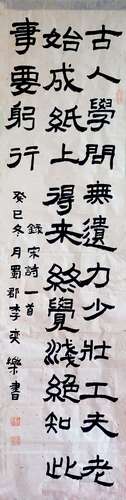 古人學問無遺力少壯工夫老
始成紙上得來終覺淺絕知此
事要躬行
錄宋詩一首
癸巳冬月蜀郡李奕樂書